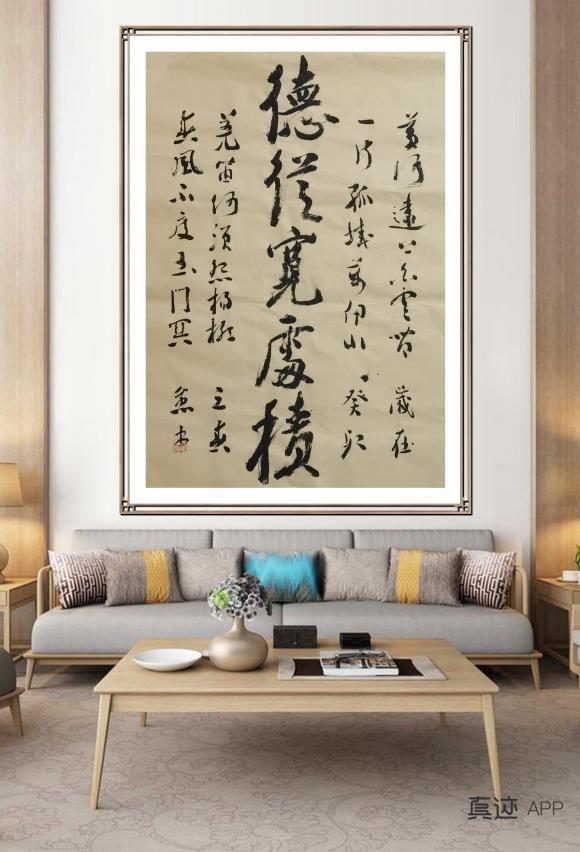 黄河遠上白雲間 歲在
一片孤城萬仞山 癸卯
德從寬處積
羌笛何須怨楊柳 之春
春風不度玉門
真迹 APP